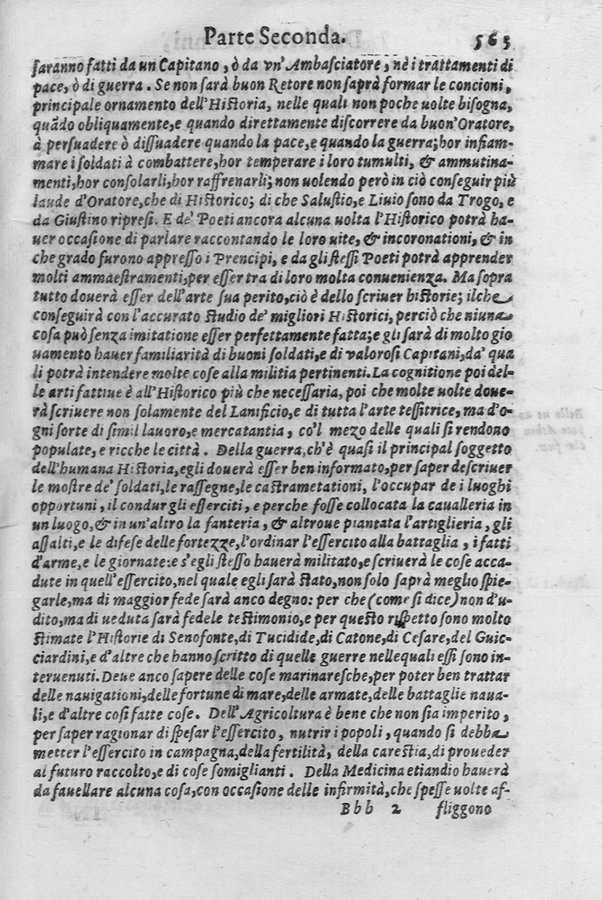 Parte Seconda. 563
saranno fatti da un Capitano, ò da vn' Ambasciatore, nè i trattamenti di
pace, ò di guerra. Se non sarà buon Retore non saprà formar le concioni,
principale ornamento dell'Historia, nelle quali non poche uolte bisogna,
quãdo obliquamente, e quando direttamente discorrere da buon'Oratore,
à persuadere ò dissuadere quando la pace, e quando la guerra; hor infiam-
mare i soldati à combattere, hor temperare i loro tumulti, & ammutina-
menti, hor consolarli, hor raffrenarli; non uolendo però in ciò conseguir più
laude d'Oratore, che di Historico; di che Salustio, e Liuio sono da Trogo, e
da Giustino ripresi. E de' Poeti ancora alcuna uolta l'Historico potrà ha-
uer occasione di parlare raccontando le loro uite, & incoronationi, & in
che grado furono appresso i Prencipi, e da gli stessi Poeti potrà apprender
molti ammaestramenti, per esser tra di loro molta conuenienza. Ma sopra
tutto douerà esser dell'arte sua perito, ciò è dello scriuer historie; ilche
conseguirà con l'accurato studio de' migliori Historici, perciò che niuna
cosa può senza imitatione esser perfettamente fatta; e gli sarà di molto gio
uamento hauer familiarità di buoni soldati, e di valorosi Capitani, da' qua
li potrà intendere molte cose alla militia pertinenti. La cognitione poi del-
le arti fattiue è all'Historico più che necessaria, poi che molte uolte doue-
rà scriuere non solamente del Lanificio, e di tutta l'arte tessitrice, ma d'o-
gni sorte di simil lauoro, e mercatantia, co'l mezo delle quali si rendono
populate, e ricche le città. Della guerra, ch'è quasi il principal soggetto
dell'humana Historia, egli douerà esser ben informato, per saper descriuer
le mostre de' soldati, le rassegne, le castrametationi, l'occupar de i luoghi
opportuni, il condur gli esserciti, e perche fosse collocata la caualleria in
un luogo, & in un'altro la fanteria, & altroue piantata l'artiglieria, gli
assalti, e le difese delle fortezze, l'ordinar l'essercito alla battaglia, i fatti
d'arme, e le giornate: e s'egli stesso hauerà militato, e scriuerà le cose acca-
dute in quell'essercito, nel quale egli sarà stato, non solo saprà meglio spie-
garle, ma di maggior fede sarà anco degno: per che (come si dice) non d'u-
dito, ma di ueduta sarà fedele testimonio, e per questo rispetto sono molto
stimate l'Historie di Senofonte, di Tucidide, di Catone, di Cesare, del Guic-
ciardini, e d'altre che hanno scritto di quelle guerre nellequali essi sono in-
teruenuti. Deue anco sapere delle cose marinaresche, per poter ben trattar
delle nauigationi, delle fortune di mare, delle armate, delle battaglie naua-
li, e d'altre cosi fatte cose. Dell'Agricoltura è bene che non sia imperito,
per saper ragionar di spesar l'essercito, nutrir i popoli, quando si debba
metter l'essercito in campagna, della fertilità, della carestia, di proueder
al futuro raccolto, e di cose somiglianti. Della Medicina etiandio hauerà
da fauellare alcuna cosa, con occasione delle infirmità, che spesse uolte af-
Bbb 2 fliggono